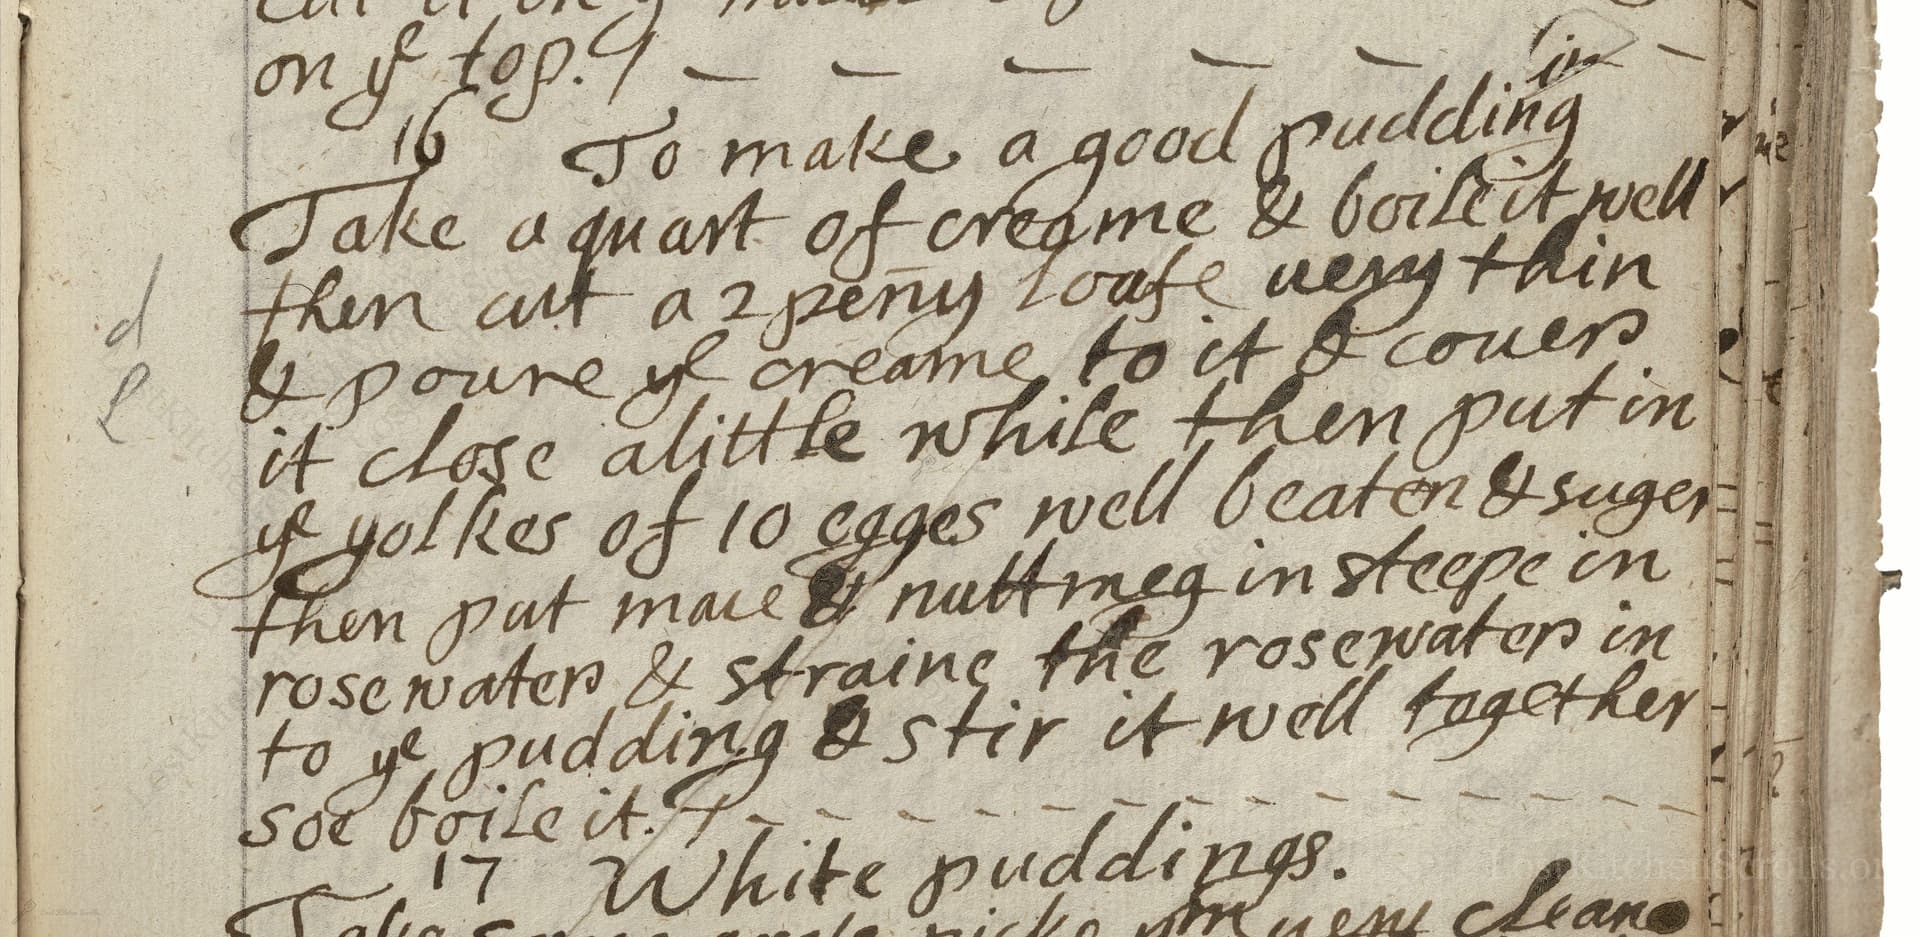 on ye top./
16 To make a good pudding
Take a quart of creame & boile it well
then cut a 2 peñy loafe uery thin
& poure ye creame to it & couer
it close alittle while then put in
ye yolkes of 10 egges well beaten & suger
then put mace & nuttmeg in steepe in
rosewater & straine the rosewater in
to ye pudding & stir it well together
soe boile it./
17 White puddings.
Take ym uery cleane